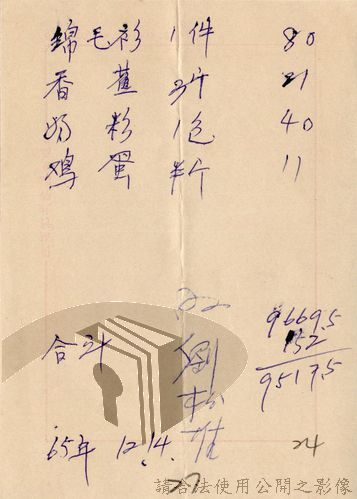 綿毛衫 1件 80
香蕉 3斤 21
奶粉 1包 40
鷄蛋 半斤 11
9669.5
152
9517.5
合計
劉松雄
65年 12.14.
24
27
請合法使用公開之影像